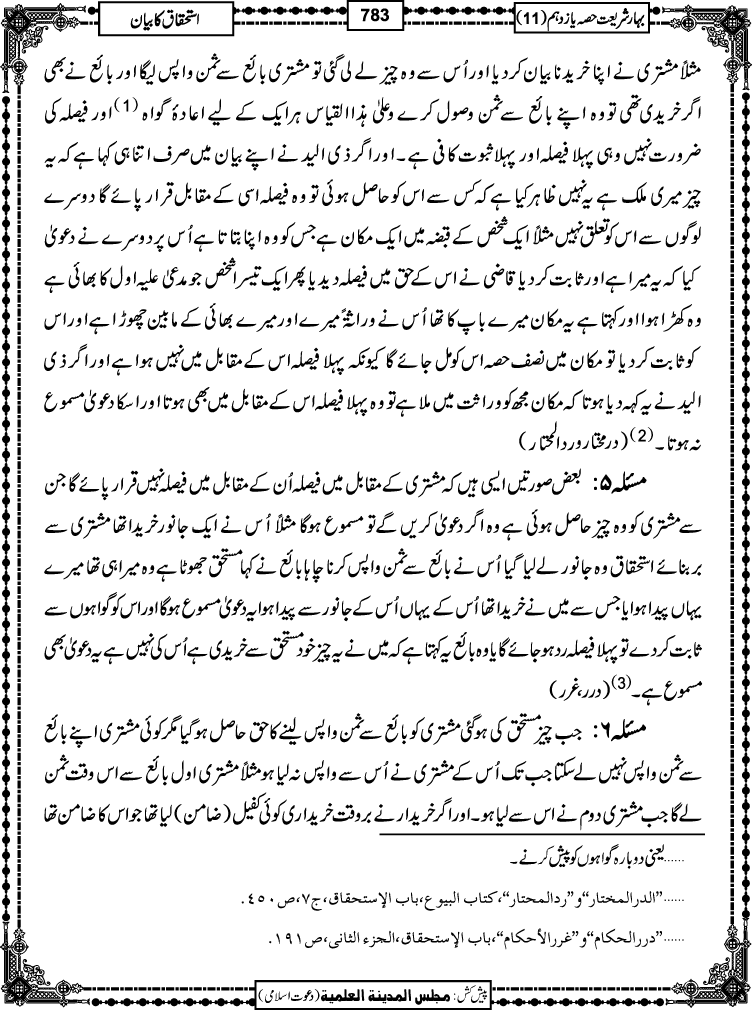 بہار شریعت حصہ یازدہم (11)
783
استحقاق کا بیان
مثلاً مشتری نے اپنا خریدنا بیان کر دیا اور اُس سے وہ چیز لے لی گئی تو مشتری بائع سے ثمن واپس لیگا اور بائع نے بھی
اگر خریدی تھی تو وہ اپنے بائع سے ثمن وصول کرے وعلیٰ ہذا القیاس ہر ایک کے لیے اعادۂ گواہ (1) اور فیصلہ کی
ضرورت نہیں وہی پہلا فیصلہ اور پہلا ثبوت کافی ہے۔ اور اگر ذی الید نے اپنے بیان میں صرف اتنا ہی کہا ہے کہ یہ
چیز میری ملک ہے یہ نہیں ظاہر کیا ہے کہ کس سے اس کو حاصل ہوئی تو وہ فیصلہ اسی کے مقابل قرار پائے گا دوسرے
لوگوں سے اس کو تعلق نہیں مثلاً ایک شخص کے قبضہ میں ایک مکان ہے جس کو وہ اپنا بتاتا ہے اُس پر دوسرے نے دعویٰ
کیا کہ یہ میرا ہے اور ثابت کر دیا قاضی نے اس کے حق میں فیصلہ دیدیا پھر ایک تیسرا شخص جو مدعیٰ علیہ اول کا بھائی ہے
وہ کھڑا ہوا اور کہتا ہے یہ مکان میرے باپ کا تھا اُس نے وراثۃً میرے اور میرے بھائی کے مابین چھوڑا ہے اور اس
کو ثابت کر دیا تو مکان میں نصف حصہ اس کو مل جائے گا کیونکہ پہلا فیصلہ اس کے مقابل میں نہیں ہوا ہے اور اگر ذی
الید نے یہ کہہ دیا ہوتا کہ مکان مجھ کو وراثت میں ملا ہے تو وہ پہلا فیصلہ اس کے مقابل میں بھی ہوتا اور اسکا دعویٰ مسموع
نہ ہوتا۔ (2) (درمختار و ردالمحتار)
مسئلہ ۵: بعض صورتیں ایسی ہیں کہ مشتری کے مقابل میں فیصلہ اُن کے مقابل میں فیصلہ نہیں قرار پائے گا جن
سے مشتری کو وہ چیز حاصل ہوئی ہے وہ اگر دعویٰ کریں گے تو مسموع ہوگا مثلاً اُس نے ایک جانور خریدا تھا مشتری سے
بر بنائے استحقاق وہ جانور لے لیا گیا اُس نے بائع سے ثمن واپس کرنا چاہا بائع نے کہا مستحق جھوٹا ہے وہ میرا ہی تھا میرے
یہاں پیدا ہوا یا جس سے میں نے خریدا تھا اُس کے یہاں اُس کے جانور سے پیدا ہوا یہ دعویٰ مسموع ہوگا اور اس کو گواہوں سے
ثابت کر دے تو پہلا فیصلہ رد ہو جائے گا یا وہ بائع یہ کہتا ہے کہ میں نے یہ چیز خود مستحق سے خریدی ہے اُس کی نہیں ہے یہ دعویٰ بھی
مسموع ہے۔ (3) (درر، غرر)
مسئلہ ۶: جب چیز مستحق کی ہوگئی مشتری کو بائع سے ثمن واپس لینے کا حق حاصل ہو گیا مگر کوئی مشتری اپنے بائع
سے ثمن واپس نہیں لے سکتا جب تک اُس کے مشتری نے اُس سے واپس نہ لیا ہو مثلاً مشتری اول بائع سے اس وقت ثمن
لے گا جب مشتری دوم نے اس سے لیا ہو۔ اور اگر خریدار نے بروقت خریداری کوئی کفیل (ضامن) لیا تھا جو اس کا ضامن تھا
......یعنی دوبارہ گواہوں کو پیش کرنے۔
......"الدرالمختار" و "ردالمحتار"، کتاب البیوع، باب الإستحقاق، ج۷، ص ٤٥٠.
......"دررالحکام" و "غررالأحکام"، باب الإستحقاق، الجزء الثانی، ص ١٩١.
پیش کش: مجلس المدینة العلمیة (دعوت اسلامی)